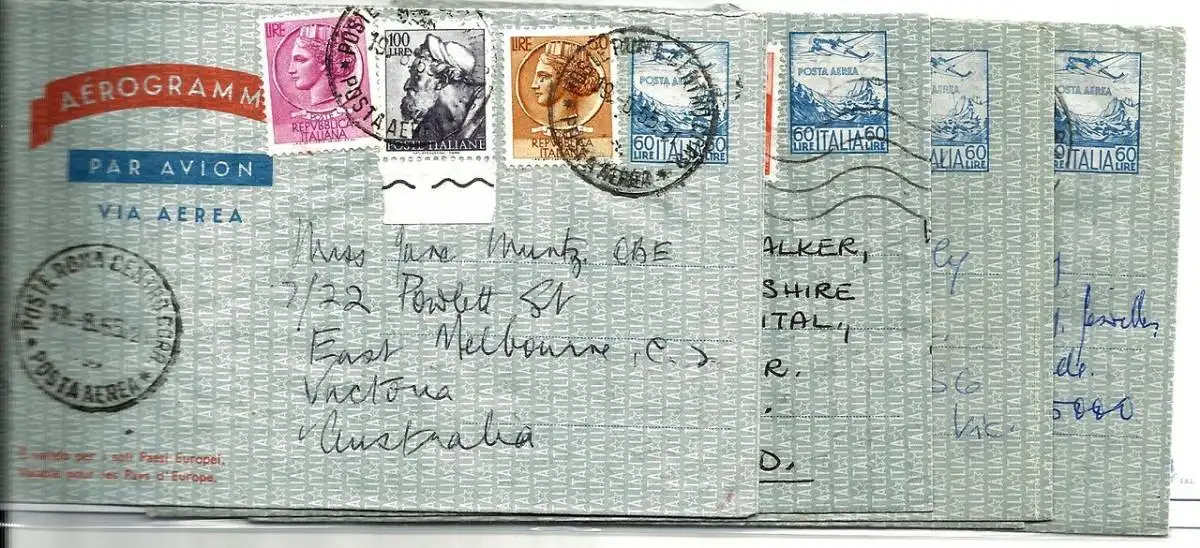 AÉROGRAMM
PAR AVION
VIA AEREA
LIRE
POSTE
REPVBBLICA
ITALIANA
100
LIRE
POSTE ITALIANE
LIRE
REPVBBLICA
POSTA AEREA
60 ITALIA 60
LIRE LIRE
POSTA AEREA
60 ITALIA 60
LIRE LIRE
POSTA AEREA
ITALIA 60
LIRE
POSTA AEREA
ITALIA 60
LIRE
POSTE ROMA
POSTA AEREA
Miss Jane Muntz CBE
7/22 Powlett St
East Melbourne, C.2.
Victoria
Australia
valido per i soli Paesi Europei.
Valable pour les Pays d'Europe.
ALKER,
SHIRE
ITAL,
R.
D.
Vic.
de.